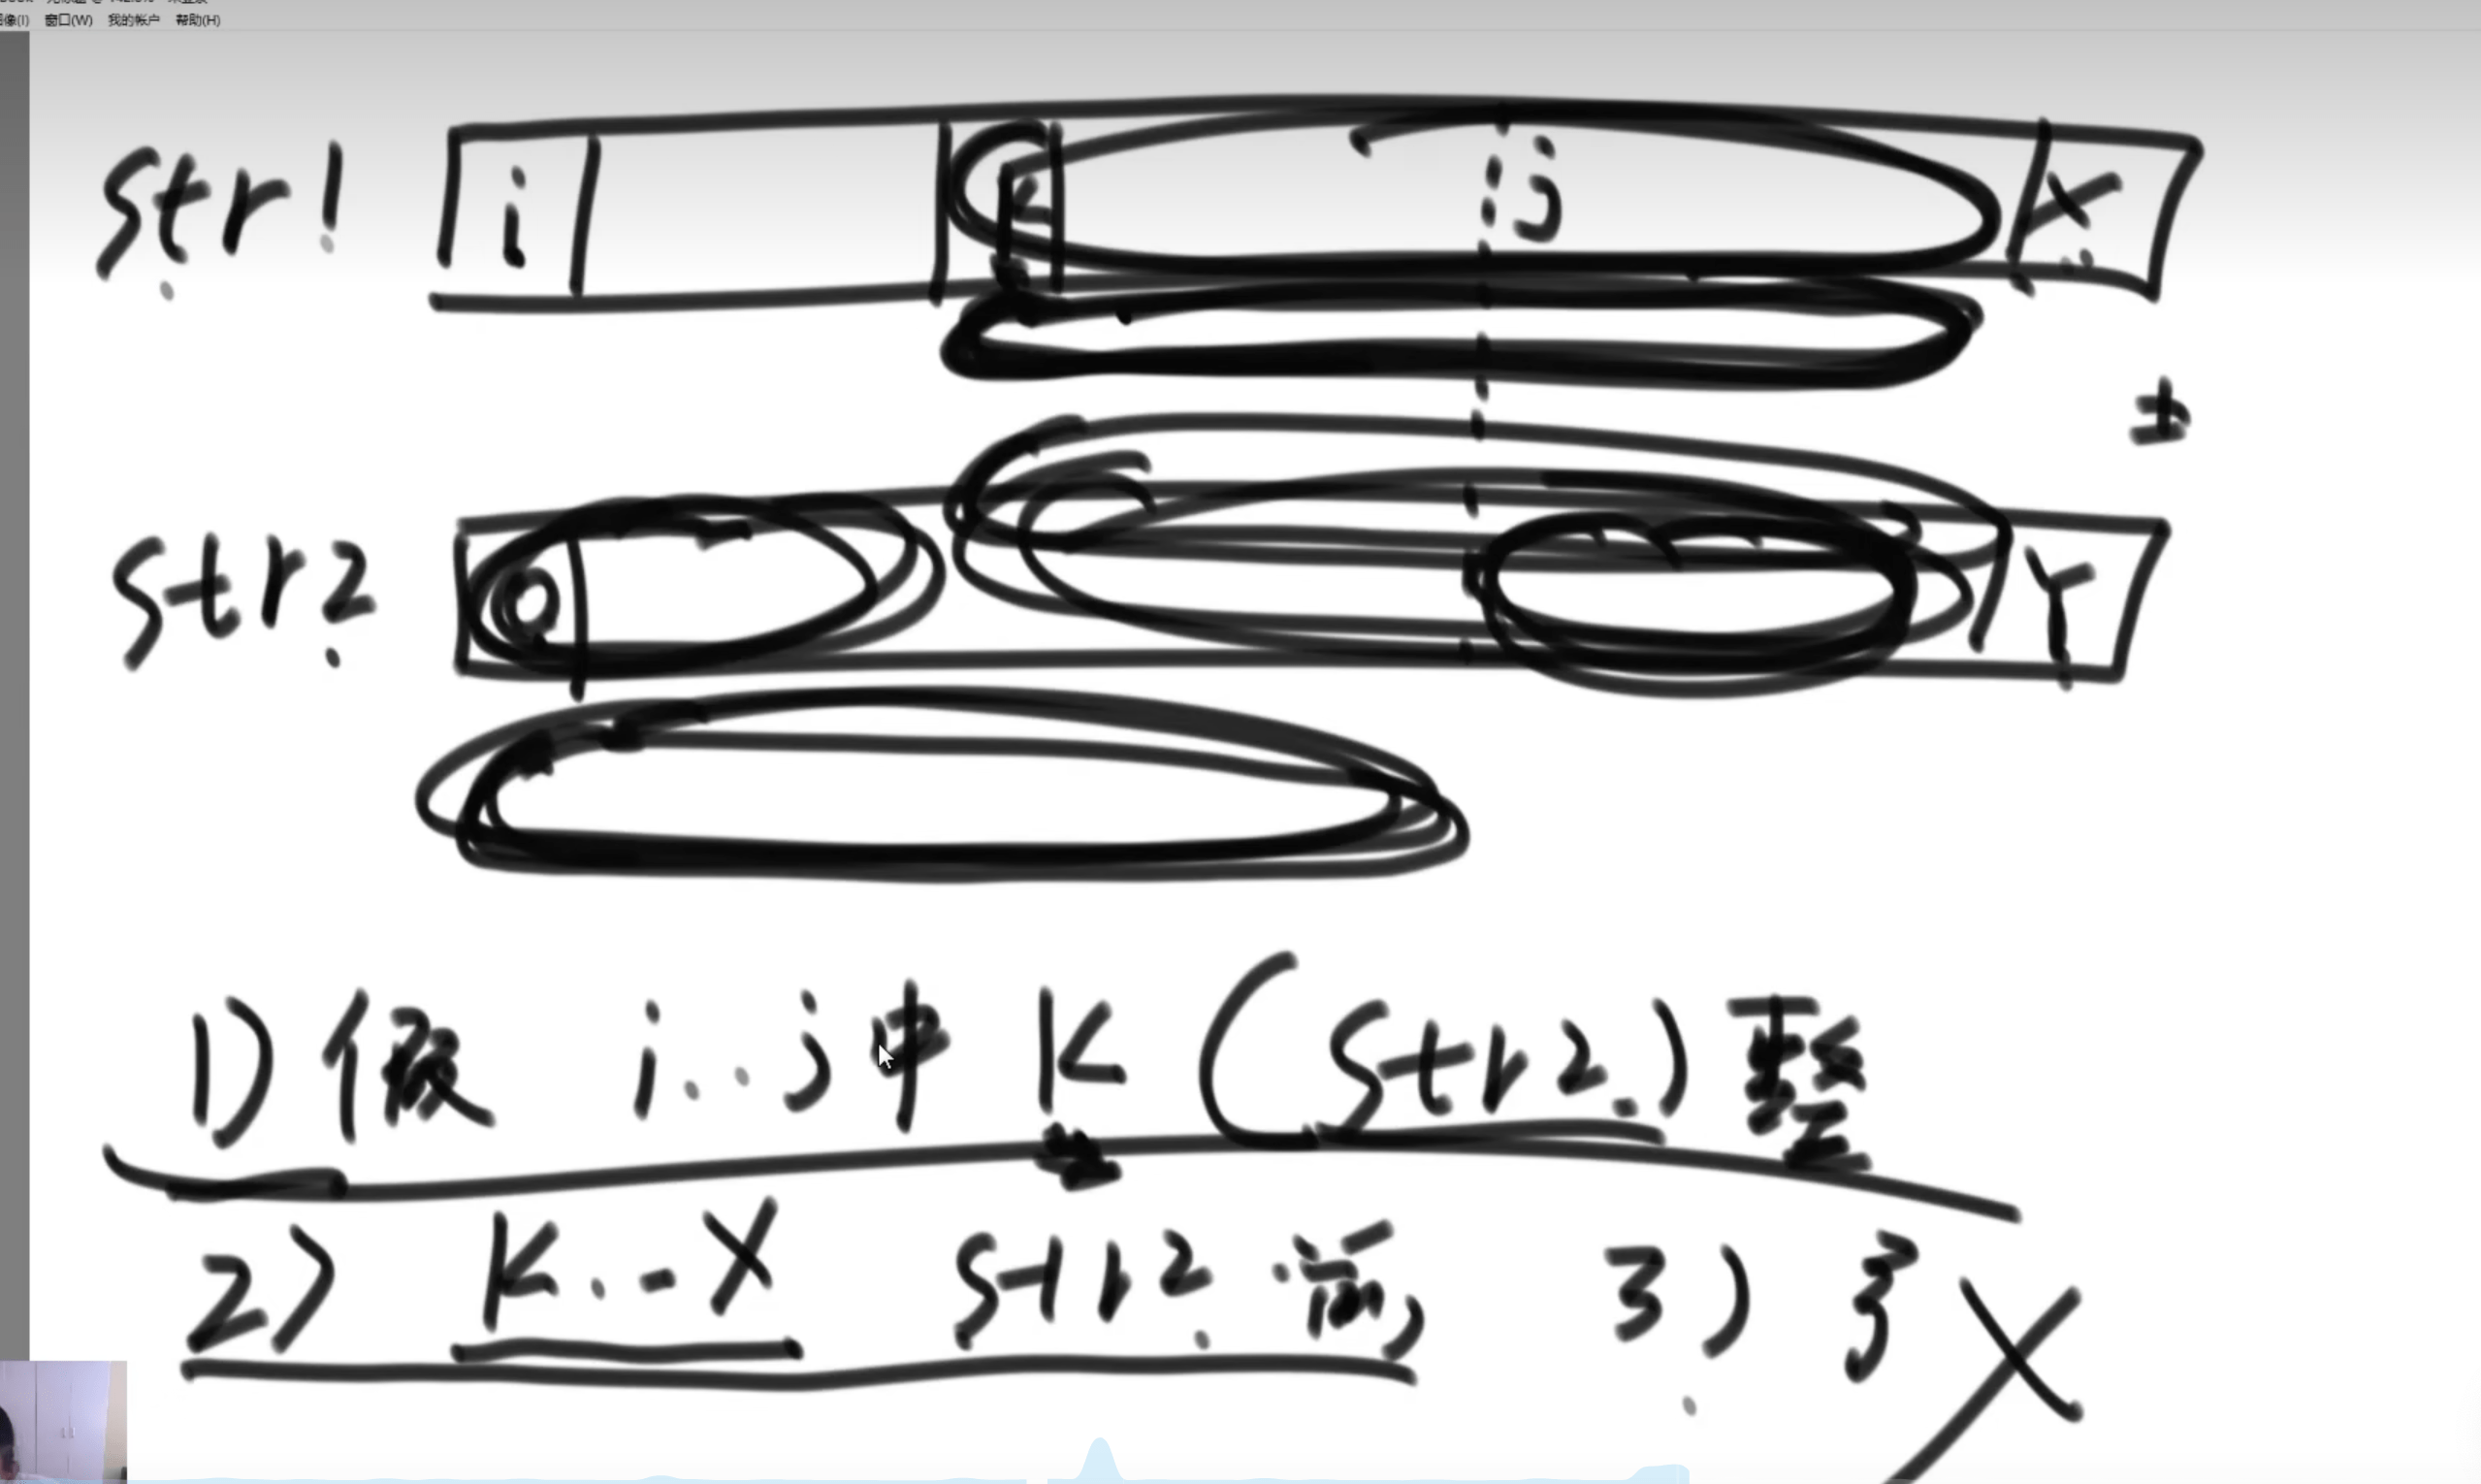 像(I) 窗口(W) 我的帐户 帮助(H)
str1 i k j X
≠
str2 0 Y
1) 假 i..j中 K (str2) 整
2) K...X str2 前, 3) 矛 X